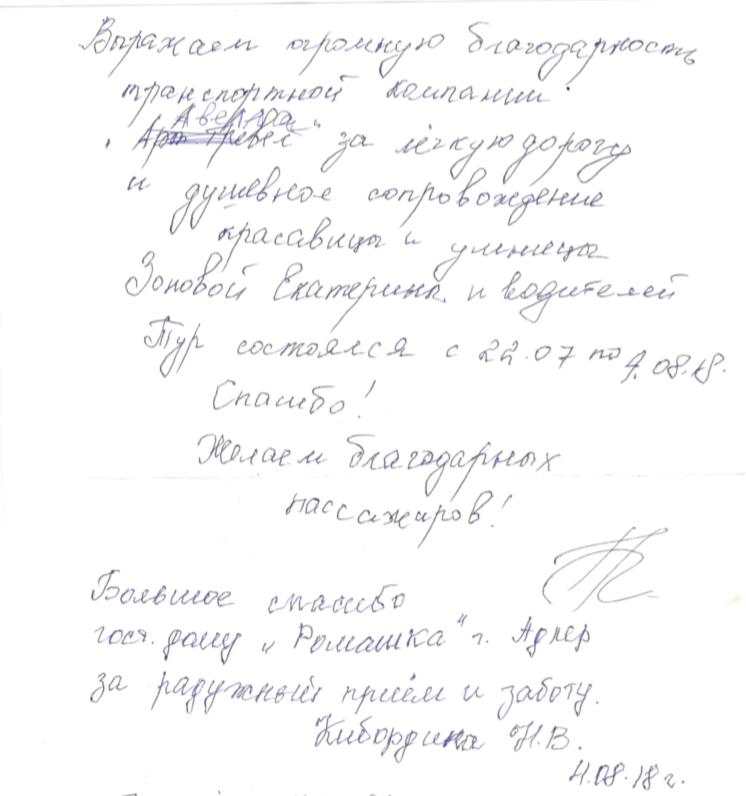 Выражаем огромную благодарность
транспортной компании
Авеллра
„Арт Тревел“ за лёгкую дорогу
и душевное сопровождение
красавицы и умницы
Зоновой Екатерины и водителей
Тур состоялся с 22.07 по 4.08.18.
Спасибо!
Желаем благодарных
пассажиров!
Большое спасибо
гост. дому „Ромашка“ г. Адлер
за радужный приём и заботу.
Кибордина Н.В.
4.08.18 г.